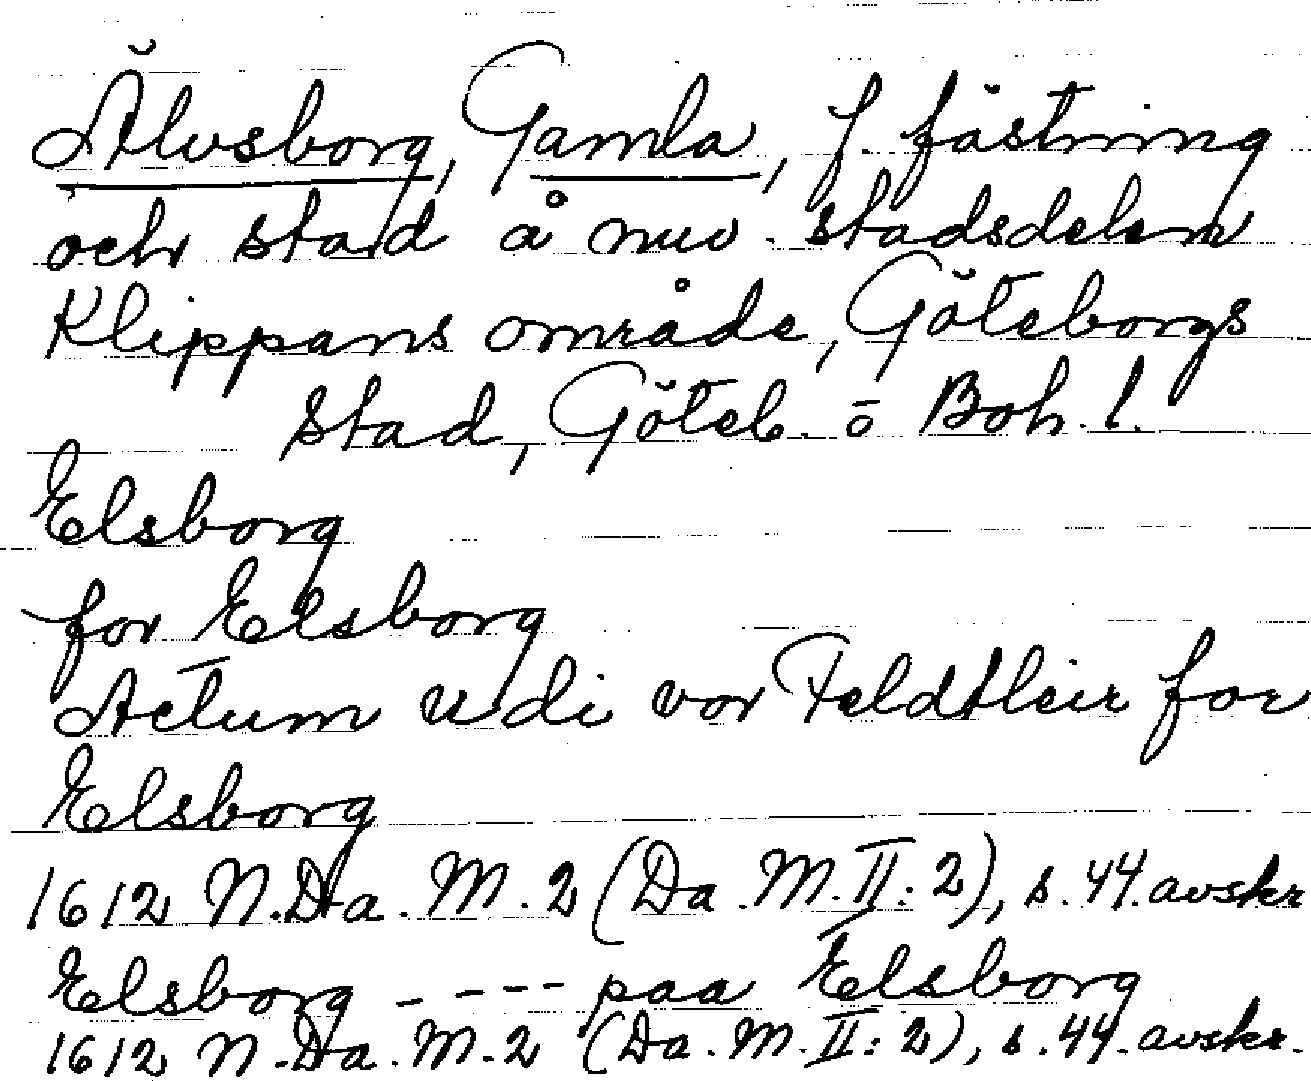 Älvsborg, Gamla, f. fästning
och stad å nuv. stadsdelen
Klippans område, Göteborgs
stad, Göteb. o Boh. l.
Elsborg
for Elsborg
Actum udi vor Feldtleir for
Elsborg
1612 N.Da.M.2 (Da.M.II:2), s.44.avskr
Elsborg ---- paa Elsborg
1612 N.Da.M.2 (Da.M.II:2), s.44.avskr.